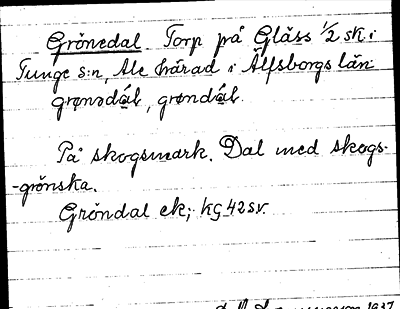 Grönedal Torp på Gläss 1/2 sk. i
Tunge s:n, Ale härad i Älfsborgs län
grønədál, grøndál.
På skogsmark. Dal med skogs-
-grönska.
Gröndal ek; kg 42 sv.
1937